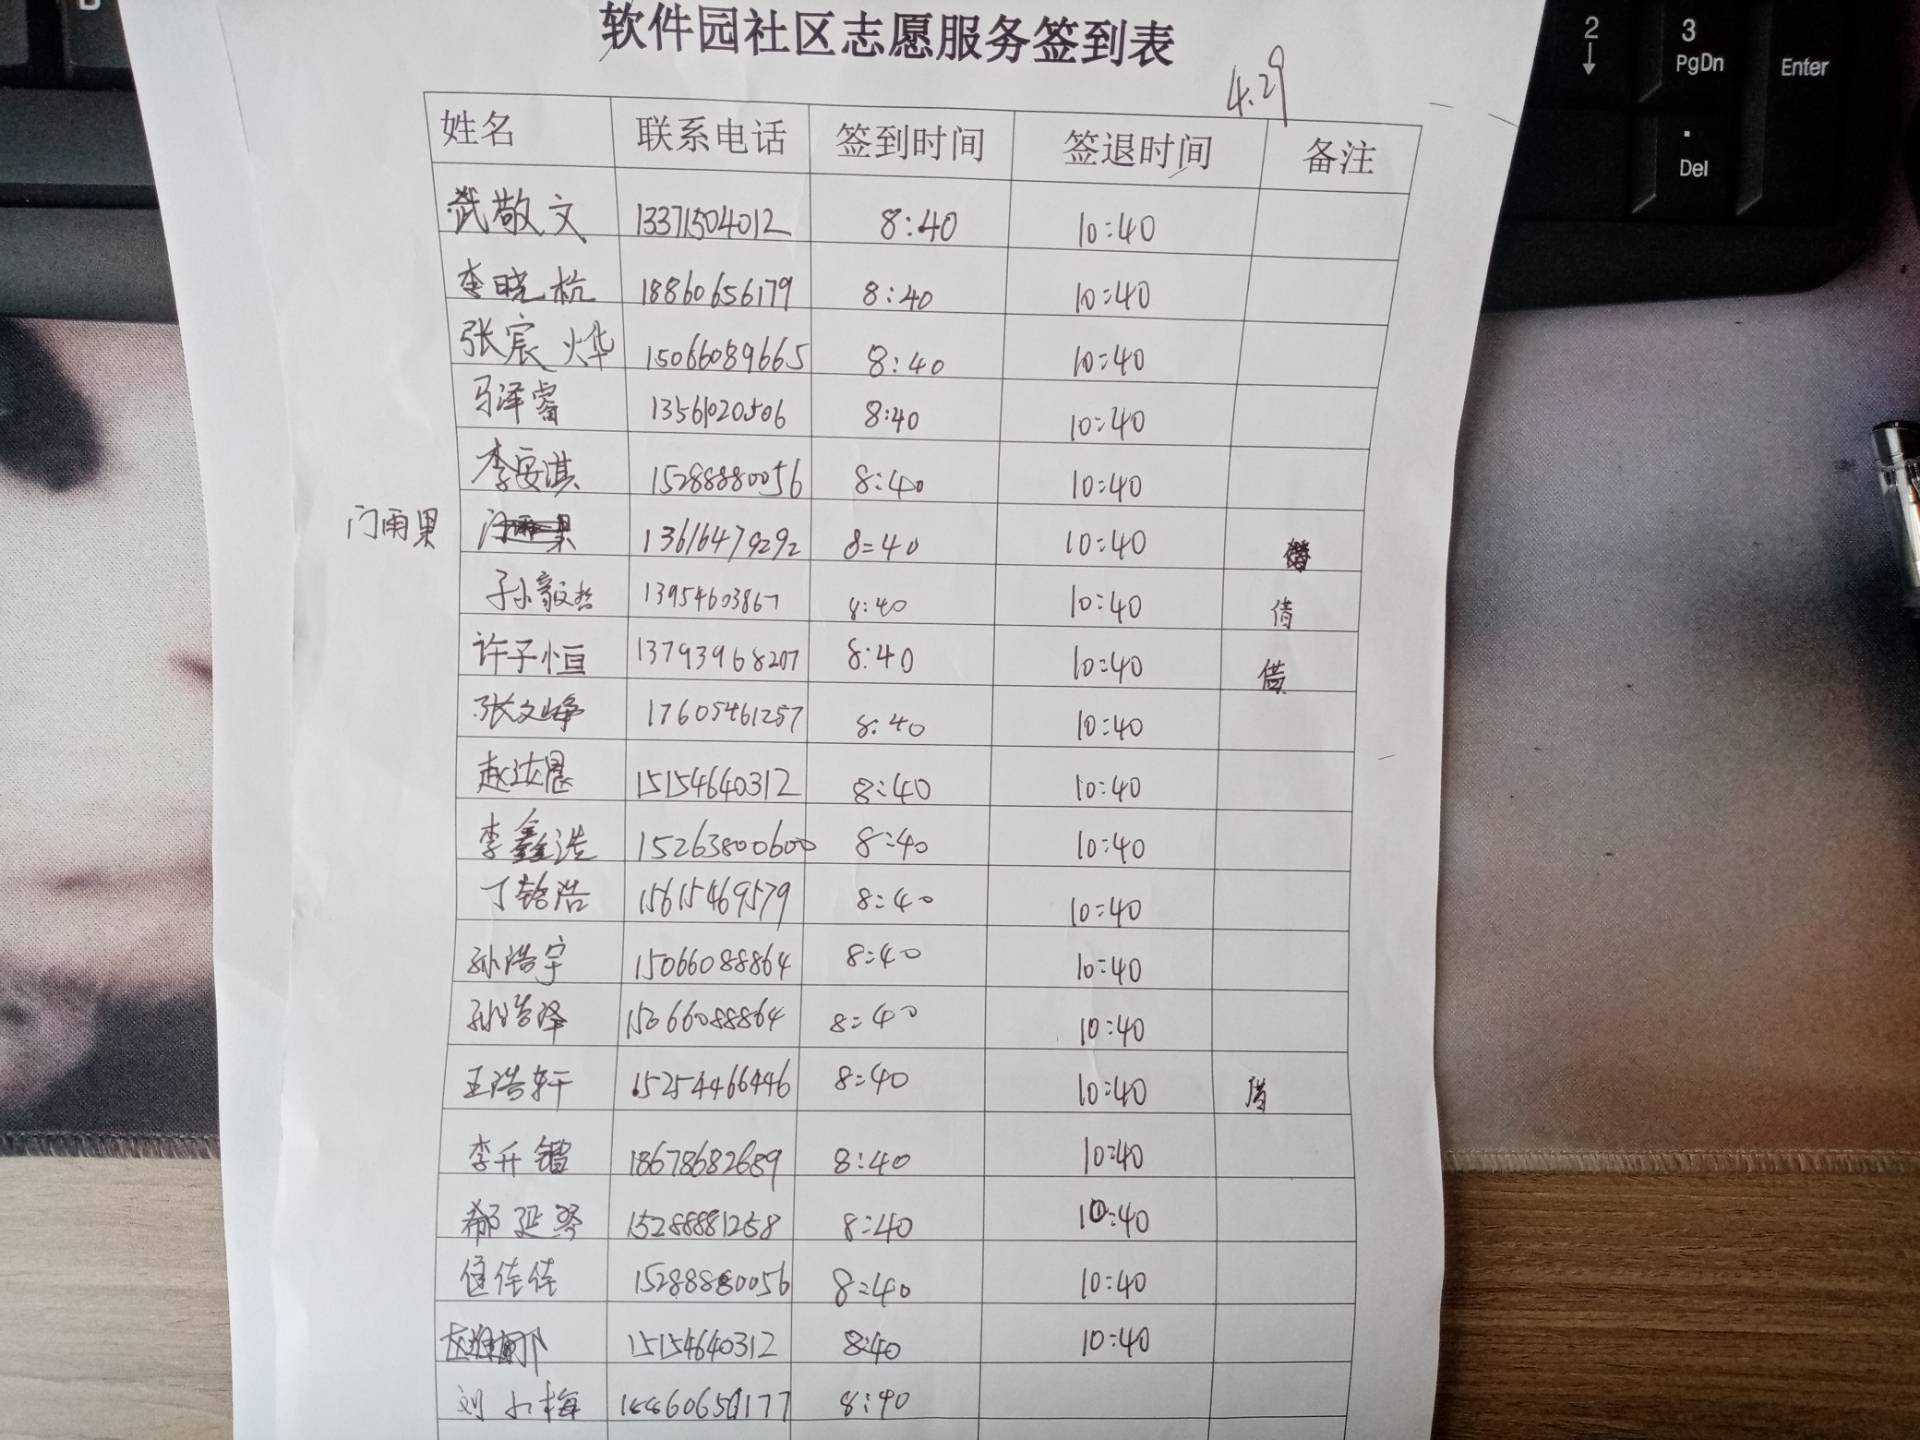 软件园社区志愿服务签到表
4.29
姓名 联系电话 签到时间 签退时间 备注
武敬文 13371504012 8:40 10:40
李晓杭 18860656179 8:40 10:40
张宸烨 15066089665 8:40 10:40
马泽睿 13561020506 8:40 10:40
李安淇 15288880056 8:40 10:40
门雨果 13616479292 8:40 10:40
孙毅哲 13954603867 8:40 10:40 借
许子恒 13793968207 8:40 10:40 借
张文峥 17605461257 8:40 10:40
赵达恩 15154640312 8:40 10:40
李鑫浩 15263800600 8:40 10:40
丁铭浩 15615469579 8:40 10:40
孙浩宇 15066088864 8:40 10:40
孙浩泽 15066088864 8:40 10:40
王浩轩 15254466446 8:40 10:40 借
李升锴 18678682689 8:40 10:40
郗延琴 15288881258 8:40 10:40
佳佳 15288880056 8:40 10:40
15154640312 8:40 10:40
刘小梅 8:40
2
3
PgDn
Enter
.
Del